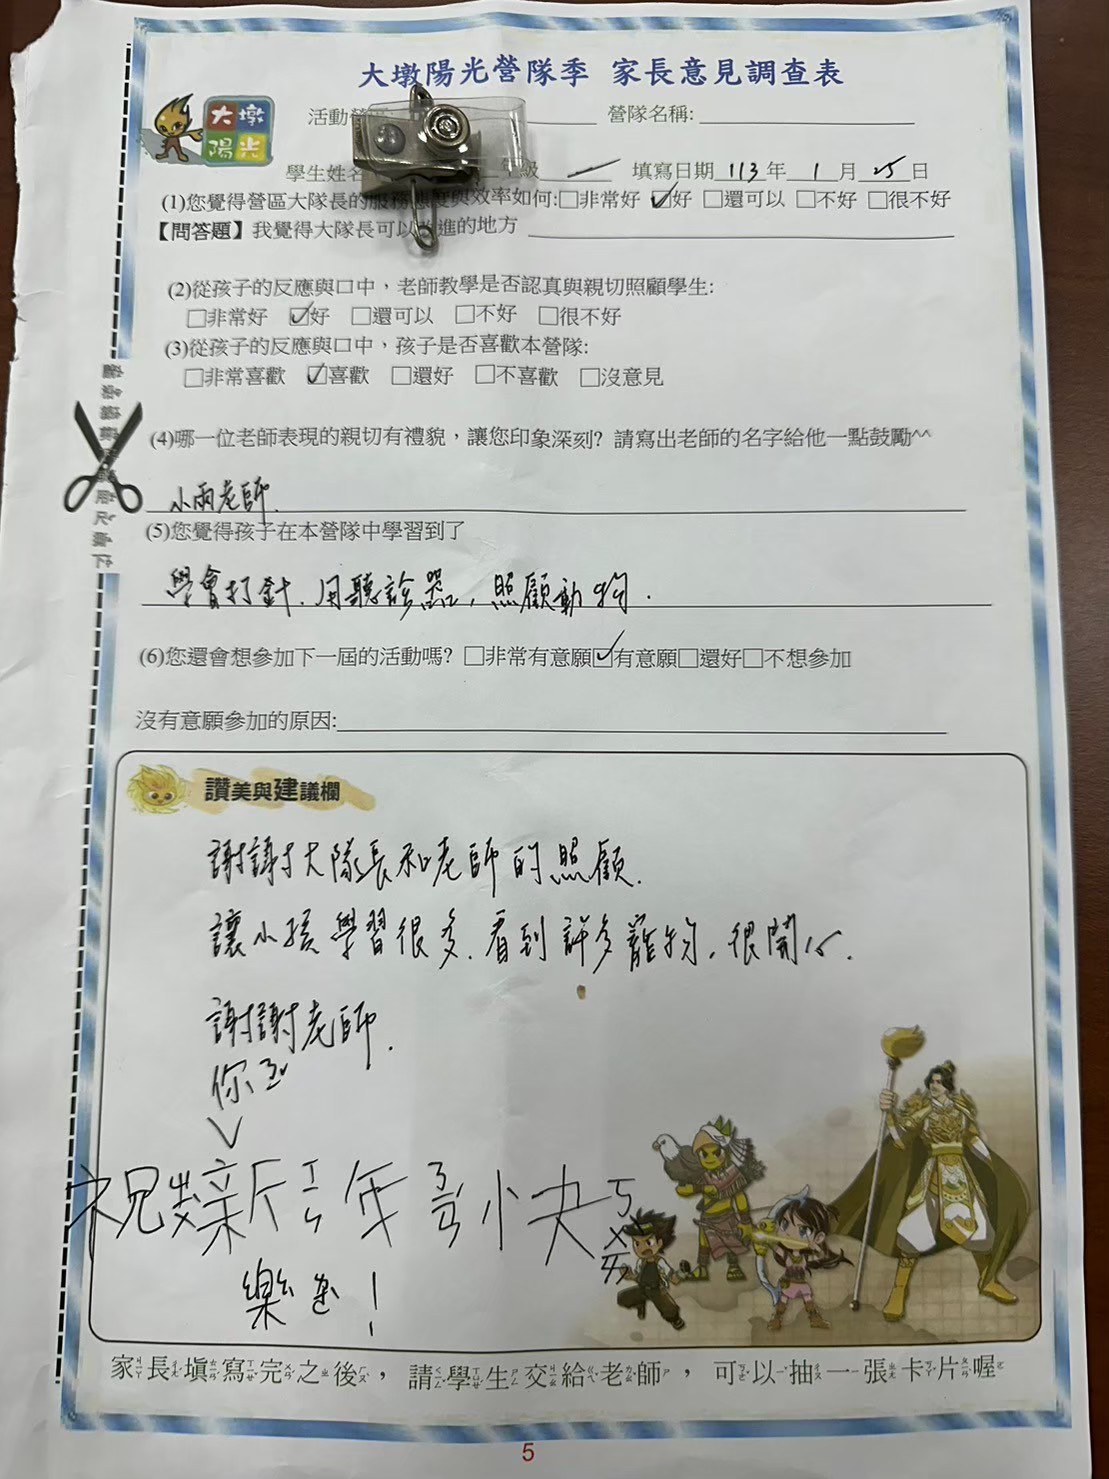 大墩陽光營隊季 家長意見調查表
大墩
陽光
活動營 營隊名稱:
學生姓名 級 一 填寫日期 113 年 1 月 25 日
(1)您覺得營區大隊長的服務態度與效率如何:□非常好 ☑好 □還可以 □不好 □很不好
【問答題】我覺得大隊長可以改進的地方
(2)從孩子的反應與口中，老師教學是否認真與親切照顧學生:
□非常好 ☑好 □還可以 □不好 □很不好
(3)從孩子的反應與口中，孩子是否喜歡本營隊:
□非常喜歡 ☑喜歡 □還好 □不喜歡 □沒意見
(4)哪一位老師表現的親切有禮貌，讓您印象深刻? 請寫出老師的名字給他一點鼓勵^^
小雨老師.
(5)您覺得孩子在本營隊中學習到了
學會打針、用聽診器，照顧動物.
(6)您還會想參加下一屆的活動嗎? □非常有意願☑有意願□還好□不想參加
沒有意願參加的原因:
讚美與建議欄
謝謝大隊長和老師的照顧.
讓小孩學習很多，看到許多寵物，很開心.
謝謝老師.
你
祝新ㄒㄧㄣ年ㄋㄧㄢˊ快ㄎㄨㄞˋ
樂 !
家長填寫完之後，請學生交給老師，可以抽一張卡片喔
5